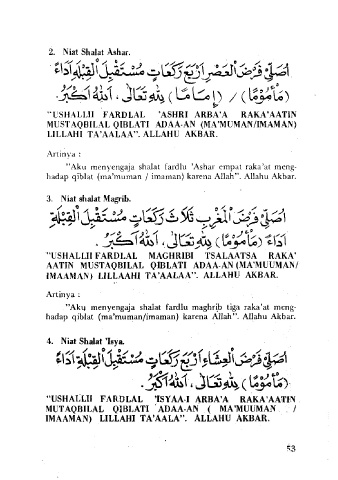 2. Niat Shalat Ashar.
اُصَلِّيْ فَرْضَ الْعَصْرِ اَرْبَعَ رَكَعَاتٍ مُسْتَقْبِلَ الْقِبْلَةِ اَدَاءً
(مَأْمُوْمًا) / (إِمَامًا) لِلّٰهِ تَعَالٰى، اَللّٰهُ اَكْبَرُ.
"USHALLII FARDLAL 'ASHRI ARBA'A RAKA'AATIN
MUSTAQBILAL QIBLATI ADAA-AN (MA'MUMAN/IMAMAN)
LILLAHI TA'AALAA". ALLAHU AKBAR.
Artinya :
"Aku menyengaja shalat fardlu 'Ashar empat raka'at meng-
hadap qiblat (ma'muman / imaman) karena Allah". Allahu Akbar.
3. Niat shalat Magrib.
اُصَلِّيْ فَرْضَ الْمَغْرِبِ ثَلَاثَ رَكَعَاتٍ مُسْتَقْبِلَ الْقِبْلَةِ
اَدَاءً (مَأْمُوْمًا) لِلّٰهِ تَعَالٰى، اَللّٰهُ اَكْبَرُ.
"USHALLII FARDLAL MAGHRIBI TSALAATSA RAKA'
AATIN MUSTAQBILAL QIBLATI ADAA-AN (MA'MUUMAN/
IMAAMAN) LILLAAHI TA'AALAA". ALLAHU AKBAR.
Artinya :
"Aku menyengaja shalat fardlu maghrib tiga raka'at meng-
hadap qiblat (ma'muman/imaman) karena Allah". Allahu Akbar.
4. Niat Shalat 'Isya.
اُصَلِّيْ فَرْضَ الْعِشَاءِ اَرْبَعَ رَكَعَاتٍ مُسْتَقْبِلَ الْقِبْلَةِ اَدَاءً
(مَأْمُوْمًا) لِلّٰهِ تَعَالٰى، اَللّٰهُ اَكْبَرُ.
"USHALLII FARDLAL 'ISYAA-I ARBA'A RAKA'AATIN
MUTAQBILAL QIBLATI ADAA-AN ( MA'MUUMAN /
IMAAMAN) LILLAHI TA'AALA". ALLAHU AKBAR.
53